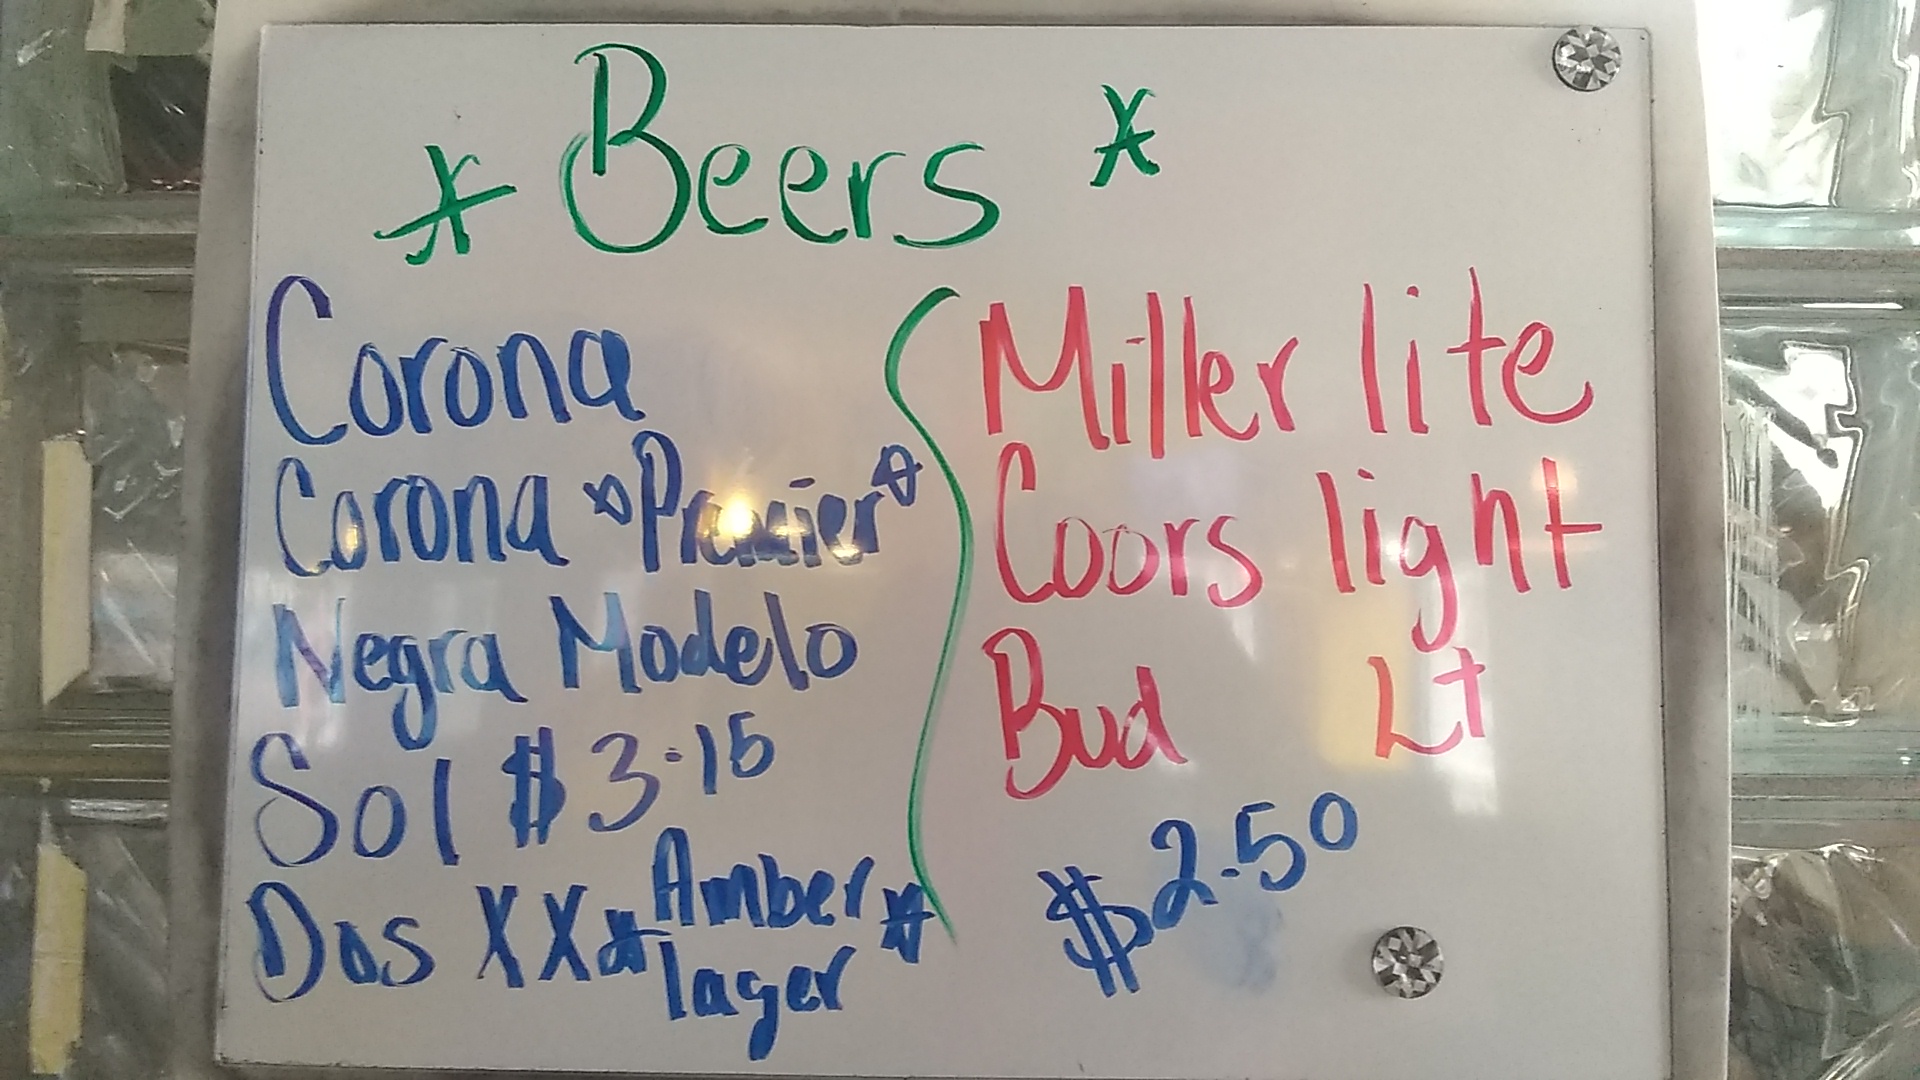 * Beers *
Corona
Corona *Premier*
Negra Modelo
Sol $3.15
Dos XX * Amber lager *
Miller lite
Coors light
Bud Lt
$2.50